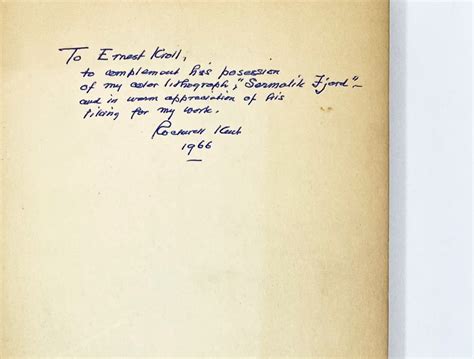 To Ernest Kroll,
to complement his posession
of my color lithograph, "Sermalik Fjord" –
and in warm appreciation of his
liking for my work.
Rockwell Kent
1966